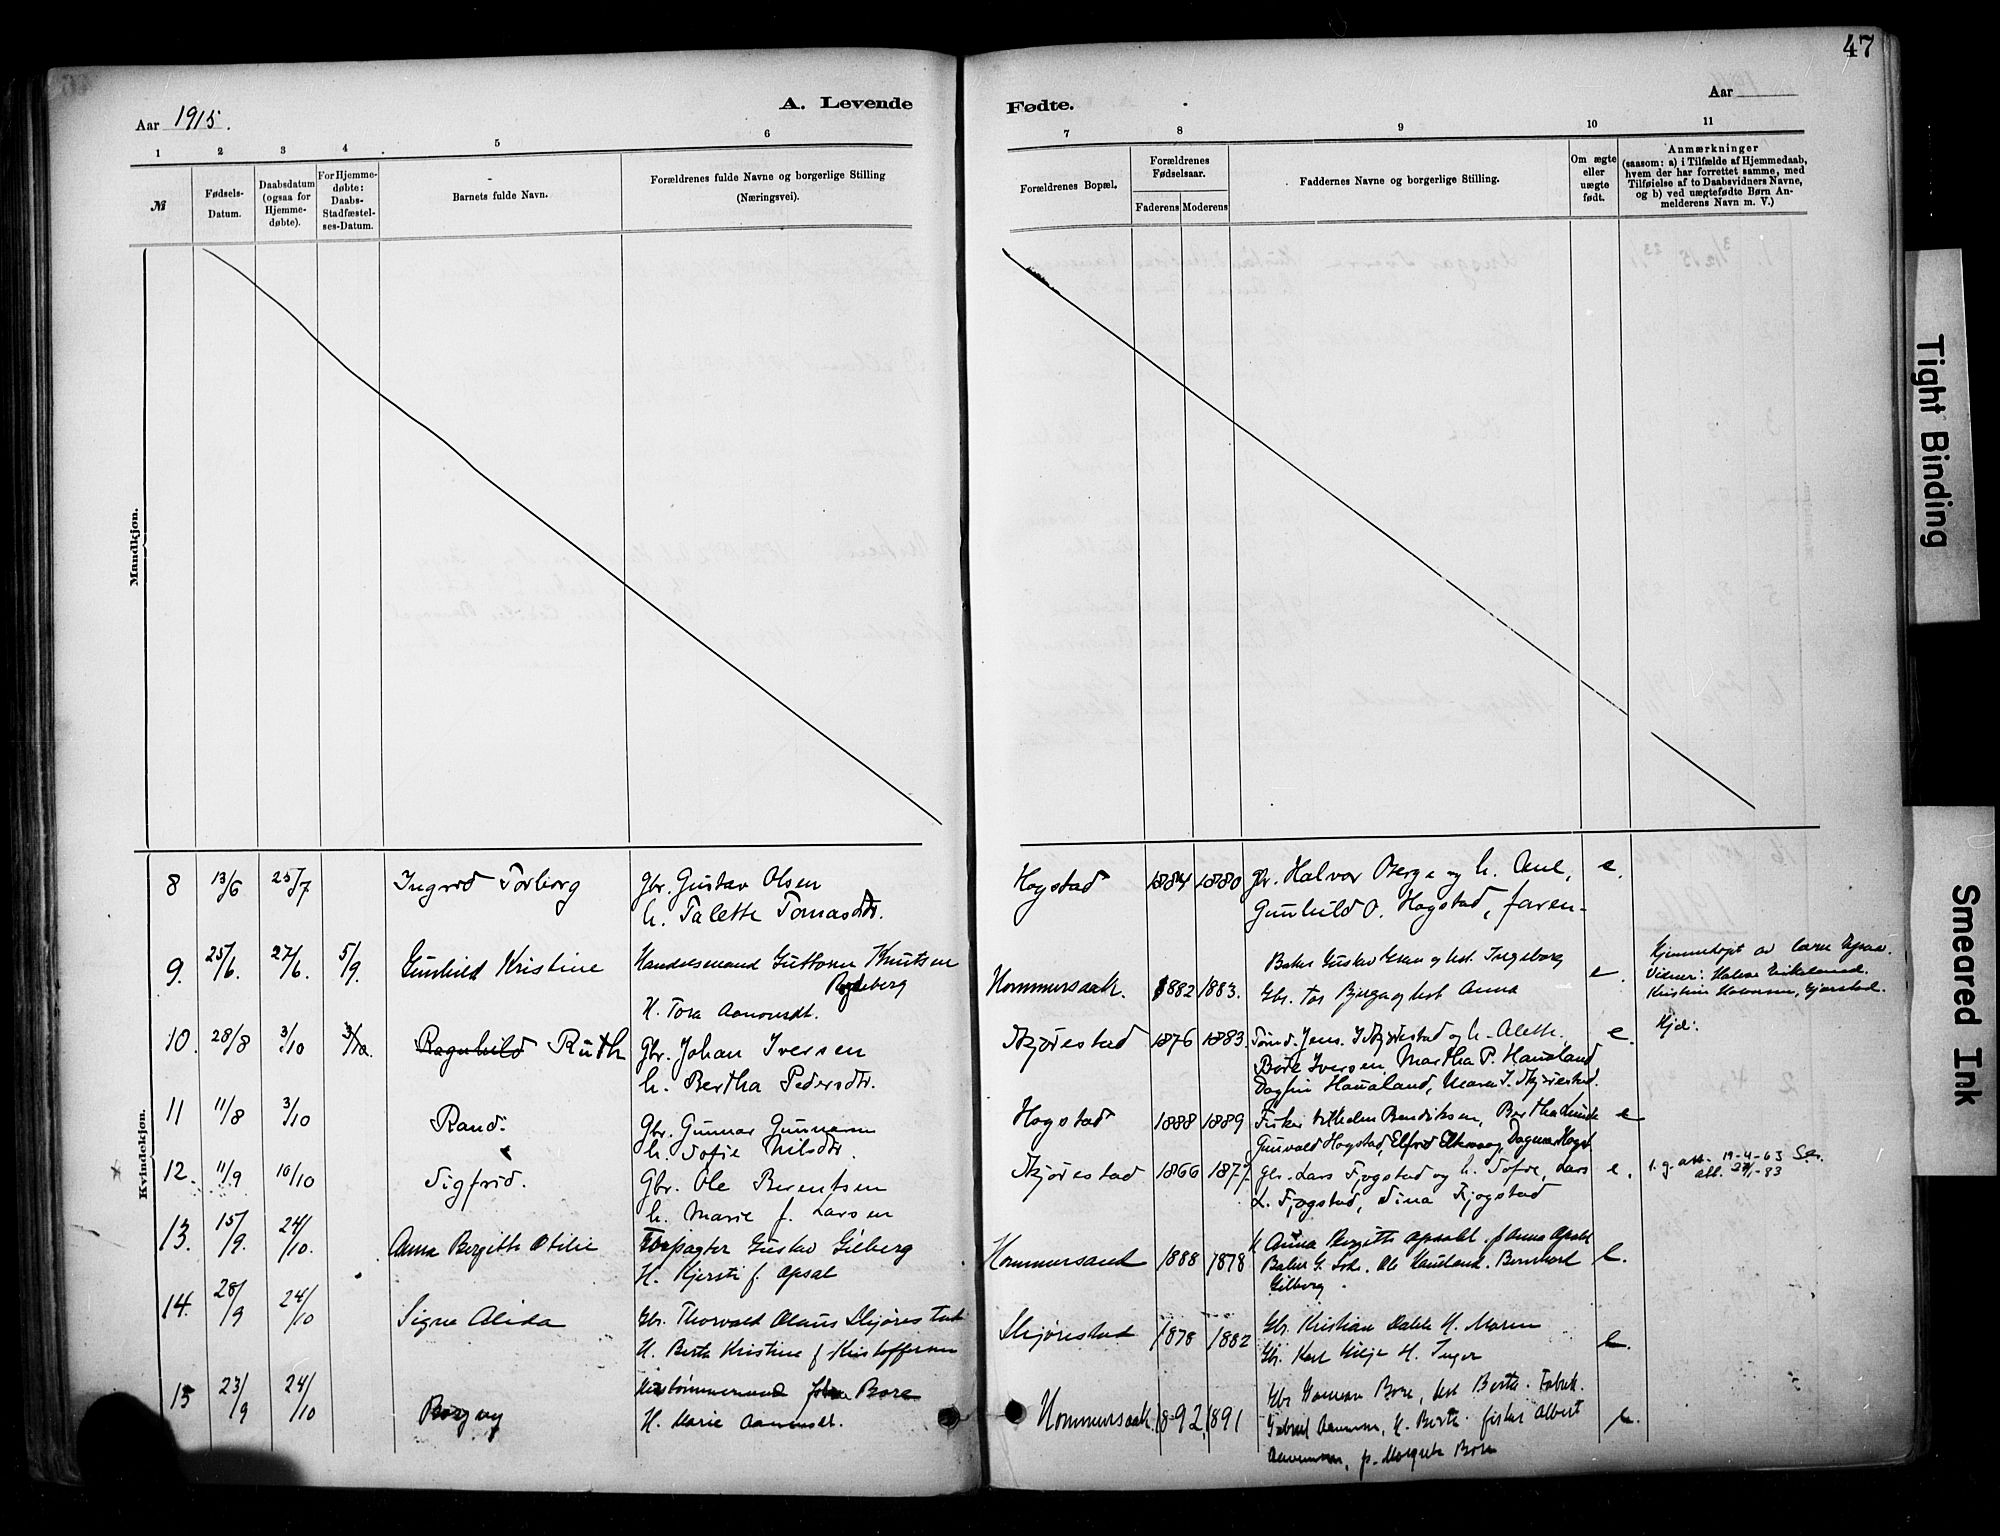 47
Aar 1915.
A. Levende
Fødte.
Aar
1 2 3 4 5 6 7 8 9 10 11
№
Fødsels-
Datum.
Daabsdatum
(ogsaa for
Hjemme-
døbte).
For Hjemme-
døbte:
Daabs-
Stadfæstel-
ses-Datum.
Barnets fulde Navn.
Forældrenes fulde Navne og borgerlige Stilling
(Næringsvei).
Forældrenes Bopæl.
Forældrenes
Fødselsaar.
Faderens Moderens
Faddernes Navne og borgerlige Stilling.
Om ægte
eller
uægte
født.
Anmærkninger
(saasom: a) i Tilfælde af Hjemmedaab,
hvem der har forrettet samme, med
Tilføielse af to Daabsvidners Navne,
og b) ved uægtefødte Børn An-
melderens Navn m. V.)
Mandkjøn.
Kvindekjøn.
8 13/6 25/7 Ingrid Torborg Gbr. Gustav Olsen Hogstad 1884 1880 Gbr. Halvor Berge og h. Ane, e.
h. Talette Tomasdtr. Gunhild O. Hogstad, faren-
9. 25/6. 27/6. 5/9. Gunhild Kristine Handelsmand Guttorm Knutsen
H. Tora
Hommersaak. 1882 1883. Baker Gustav og hst. Ingeborg
Gbr. Tor Bjerga og hst Anna e.
Hjemmedøpt av
Vidner:
Kristine
10. 28/8 3/10 3/10. Ragnhild Ruth Gbr. Johan Iversen Skjørestad 1876 1883. Jens I. Skjørestad og h. Alette. e. Hjd:.
h. Bertha Pedersdtr. Børe Iversen, Martha P. Haualand
Haualand, Maren I. Skjørestad.
11 11/8 3/10 Randi Gbr. Gunnar Gunnarsen Hogstad 1888 1889 Fisker Vilhelm Bendiksen, Bertha e
h. Sofie Nilsdtr. Gunvald Hogstad, Elfrid Dagmar Hogst
12. 11/9 10/10 Sigfrid. Gbr. Ole Berentsen Skjørestad 1866 1877. Gbr. Lars Fjogstad og h. Sofie, Lars e. 19-4-63
att. 83
h. Marie f. Larsen L. Fjogstad, Sina Fjogstad
13. 15/9. 24/10. Anna Bergitte Otilie Forpagter Gustav Gilberg Hommersand 1888 1878 Anna Bergitte Apsal. f. Anna Apsal e.
H. Kjersti f. Apsal Baker G. Ole Hauland. Bernhard
Gilberg.
14. 28/9 24/10 Signe Alida Gbr. Thorvald Olaus Skjørestad Skjørestad 1878 1882 Gbr. Kristian Dale H. Maren e.
H. Berte Kristine f. Kristoffersen Gbr. Karl Gilje H. Inger
15 23/9 24/10 Borgny Bore Hommersaak 1892 1891 Gbr Bore, hst. Berte. Fabrik. e.
H. Marie Gabriel H. Berte. fisker Albert
p. Margrete Bore
Tight Binding
Smeared Ink